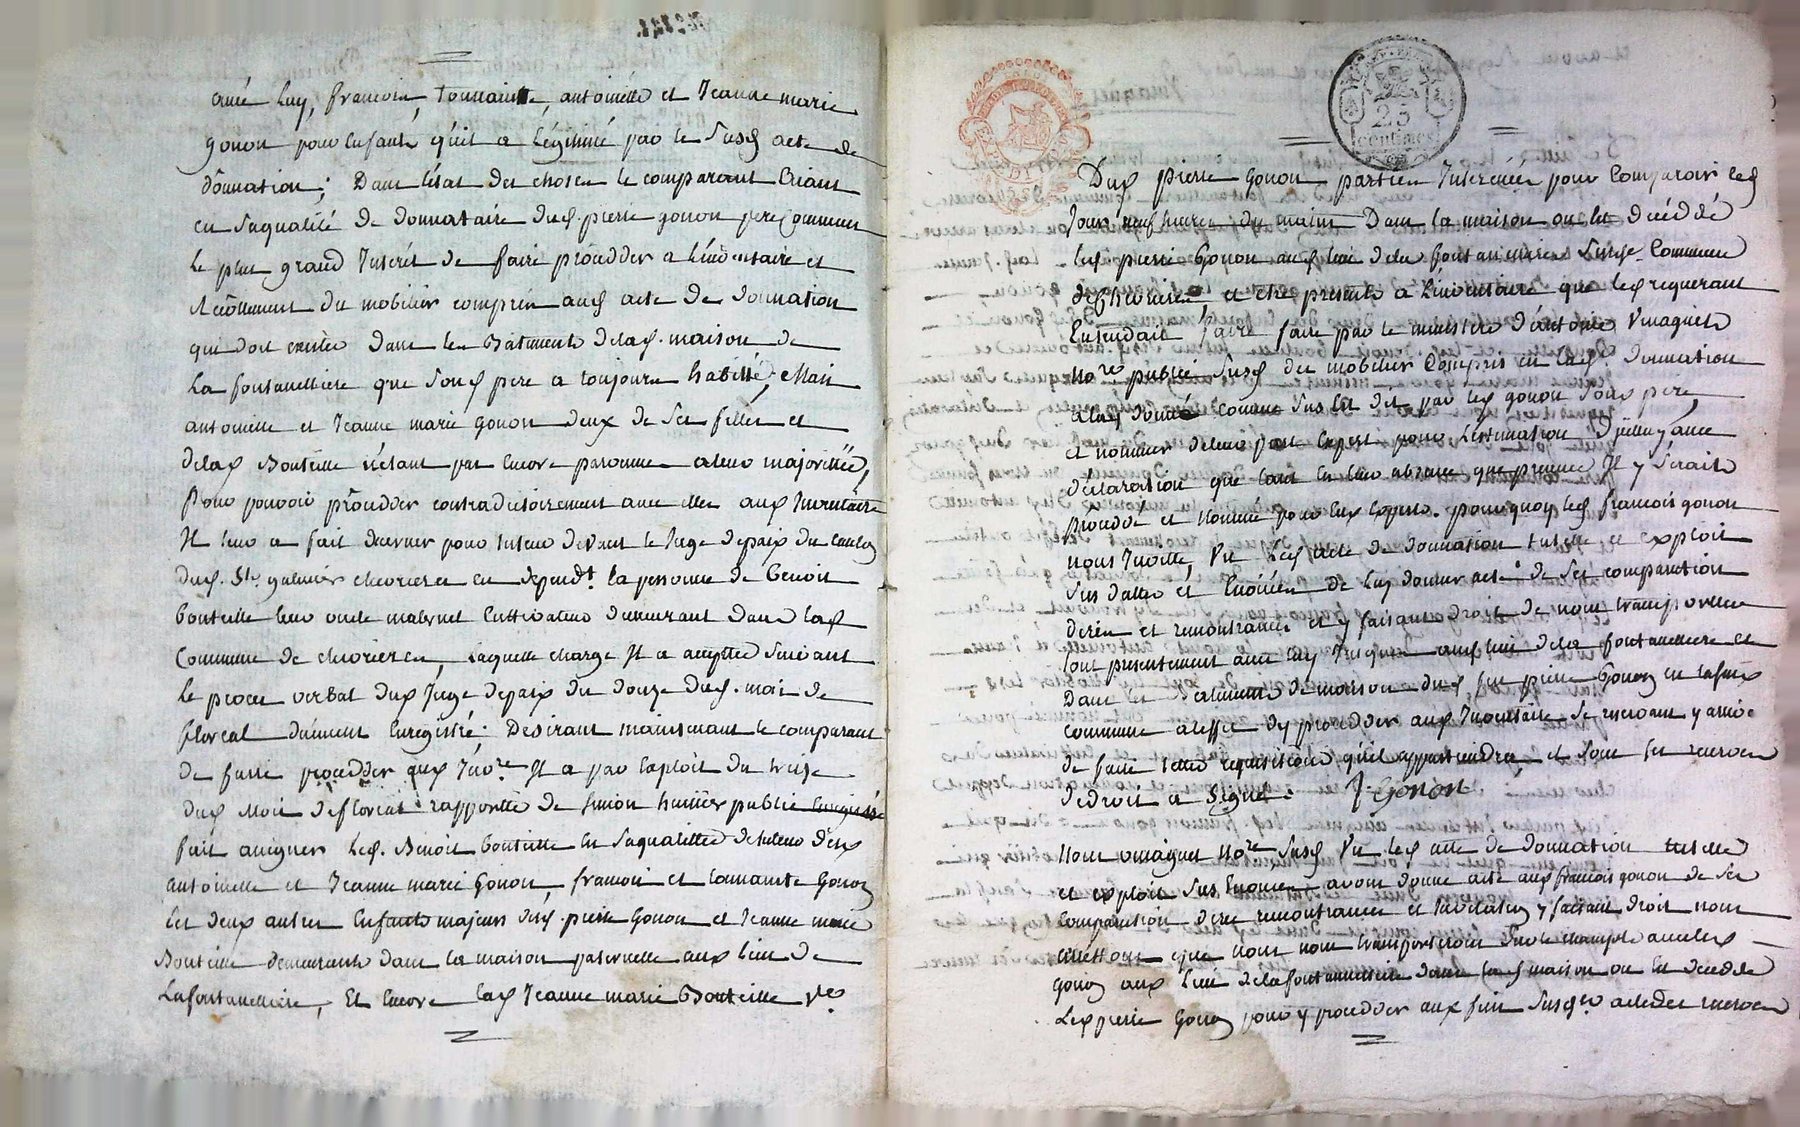 avec luy, francois, toussainte, antoinette et Jeanne marie
gonon pour Enfants qu'il a légitimé par le susd acte de
donnation; Dans l'état des choses le comparant Eiant
en saqualité de donnataire dud. pierre gonon pere Commun
le plus grand Interét de faire procedder a L'inventaire et
recollement du mobilier compris aud acte de donnation
qui doit exister dans les Batiments delad. maison de
La fontanelliere que sond pere a toujours habitté, Mais
antoinette et Jeanne marie gonon deux de ses filles et
delad Bouteille n'étant pas Encore parvenue aleur majorittée,
Pour pouvoir procedder contradictoirement avec elles aud Inventaire
Il leur a fait decerner pour tuteur devant le Juge depaix du canton
dud. St. galmier chevrieres en depend.t la personne de Benoit
bouteille leur oncle maternel Cultivateur demeurant dans lad
Commune de chevrieres, Laquelle charge Il a acceptée suivant
Le proces verbal dud Juge depaix du douze dud. mois de
floreal duement Enregistré. Desirant maintenant le comparant
de faire procedder aud Inv.re Il a par Exploit du treize
dud. Mois defloreal rapportté de simon huissier public Enregistré
fait assigner led. Benoit bouteille en saqualittée detuteur desd
antoinette et Jeanne marie Gonon, francois et toussainte Gonon
les deux autres Enfants majeurs dud. pierre Gonon et Jeanne marie
Bouteille demeurants dans la maison paternelle aud lieu de
Lafontanelliere, Et Encore lad Jeanne marie Bouteille v.e
25
centimes
Dud pierre Gonon parties Interéssées pour Comparoir led
Jour neuf heures du matin Dans la maison ou est décéddé
led pierre Gonon aud lieu dela fontanelliere Commune
ded chevrieres, et etre presents a L'inventaire que led requerant
Entendait faire faire par le ministere d'antoine vmaguet
No.re public susd du mobilier Compris en lad. donnation
alay donné comme sus est dit par led gonon son pere,
et nommer deleur part Expert pour L'estimation d'jelluy, avec
déclaration que tant en leur absence que presence Il y serait
proceddé et nommé pour Eux Experts. pourquoy led francois gonon
nous Invitte, vu Led acte de donnation tutelle et exploit
sus dattés et Enoncés de luy donner acte de ses comparution
dires et remontrances et y faisant droit de nous transportter
tout presentement avec luy Jusques aud lieu dela fontanelliere et
Dans les batiments de maison dud feu pierre Gonon en lasusd
commune aleffet dy procedder aud Inventaire se reservant y arrivé
de faire telles requisitions qu'il appartiendra et sous les reserves
dedroit a signé. F. Gonon
Nous vmaguet No.re susd vu led acte de donnation tutelle
et exploit sus Enoncés avons donné acte aud francois gonon de ses
Comparution dires remontrances et Invitation y faisant droit nous
arrettons que nous nous transporterons sur le champ avecled
gonon aud lieu delafontanelliere dans lad maison ou est deceddé
Led pierre Gonon pour y procedder aux fins susd.es actedes reserves